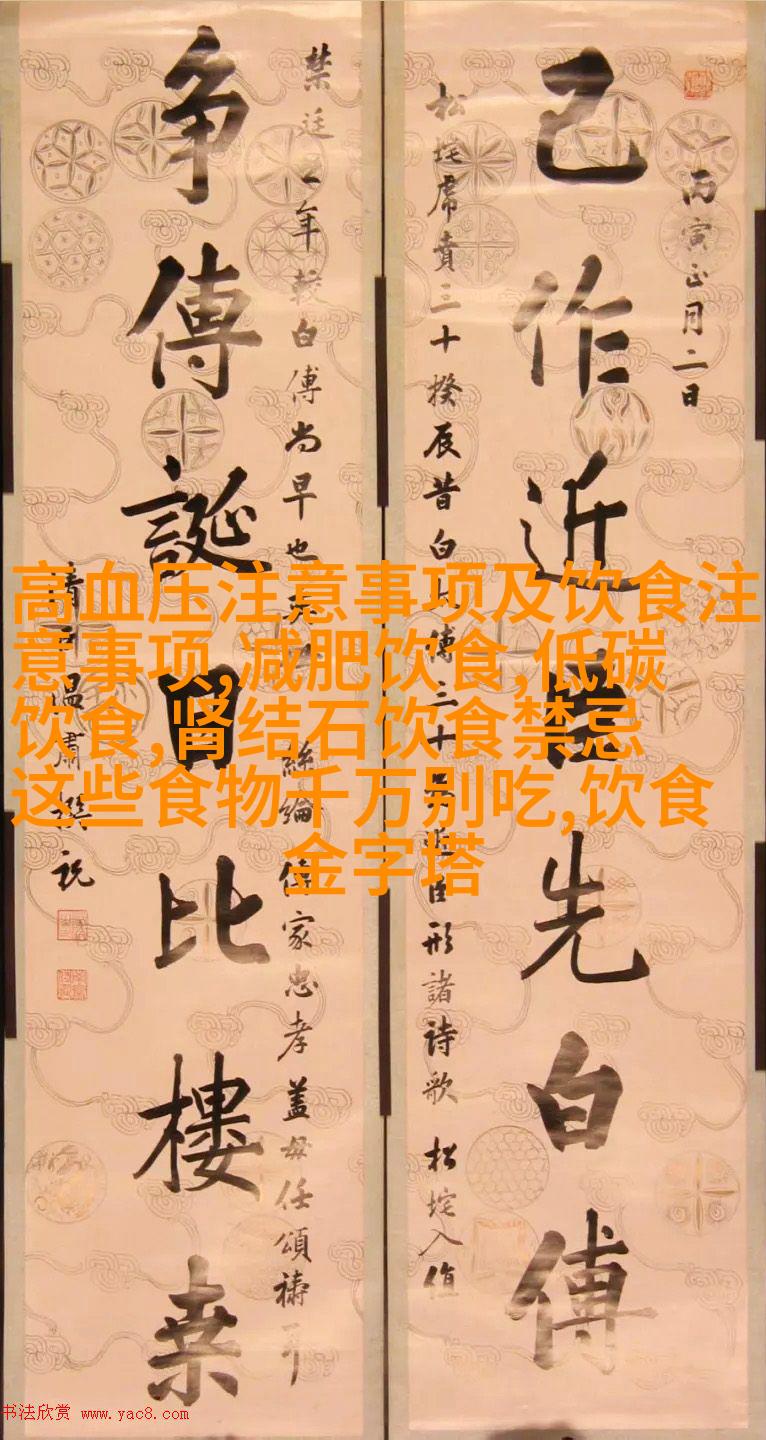 丙寅正月二日
己作近臣先白傅
松垞席賁三十揆辰昔白傅三十近臣形諸詩歌 松垞入值
禁廷年較白傅尚早也 絲綸傳家忠孝蓋毋任頌禱耳
争傳誕日比樓桑
温肅撰祝
高血压注意事项及饮食注
意事项,减肥饮食,低碳
饮食,肾结石饮食禁忌
这些食物千万别吃,饮食
金字塔
书法欣赏 www.yac8.com